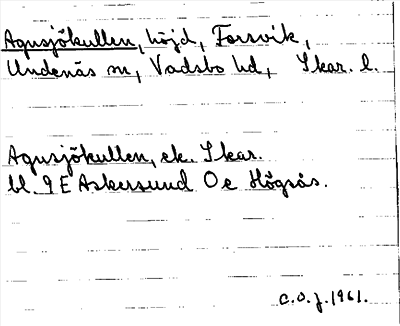 Agnsjökullen, höjd, Forsvik,
Undenäs sn, Vadsbo hd, Skar. l.
Agnsjökullen, ek. Skar.
bl. 9E Askersund Oe Högsås.
C.O.J. 1961.